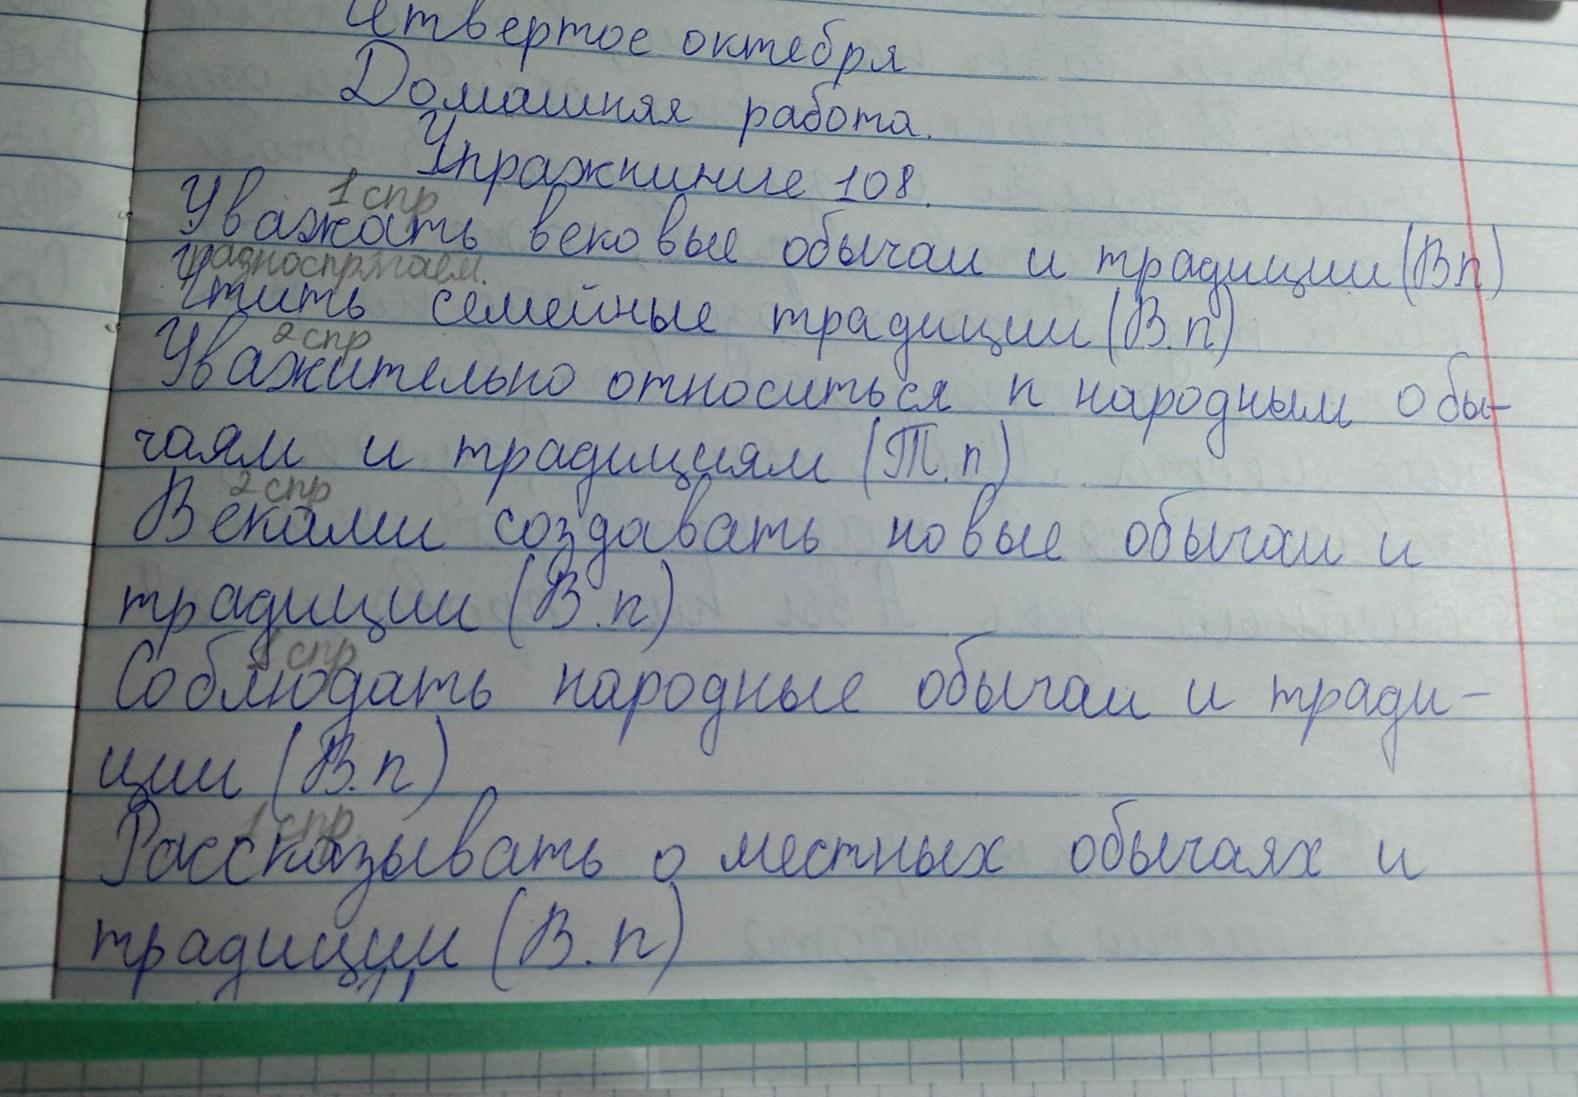 Четвертое октебря
Домашняя работа.
Упражниние 108.
1 спр
Уважать вековые обычаи и традиции (Вп)
разноспрягаем.
Чтить семейные традиции (В.п)
2 спр
Уважительно относиться к народным обы-
чаям и традициям (Т.п)
2 спр
Веками создавать новые обычаи и
традиции (В.п)
1 спр
Соблюдать народные обычаи и тради-
ции (В.п)
1 спр
Рассказывать о местных обычаях и
традиции (В.п)